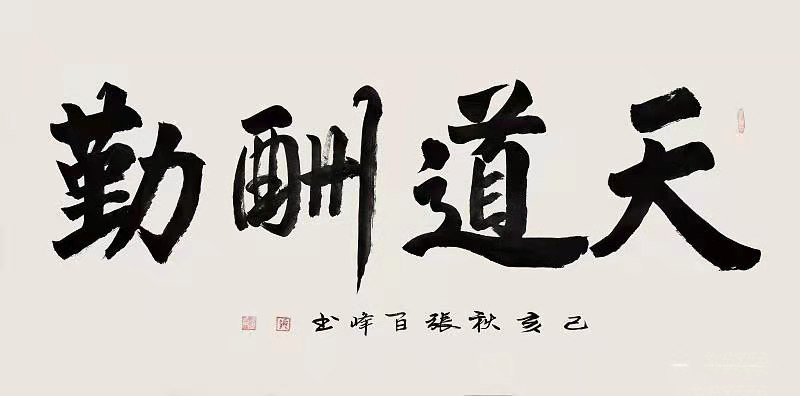 天道酬勤
己亥秋張百峰书